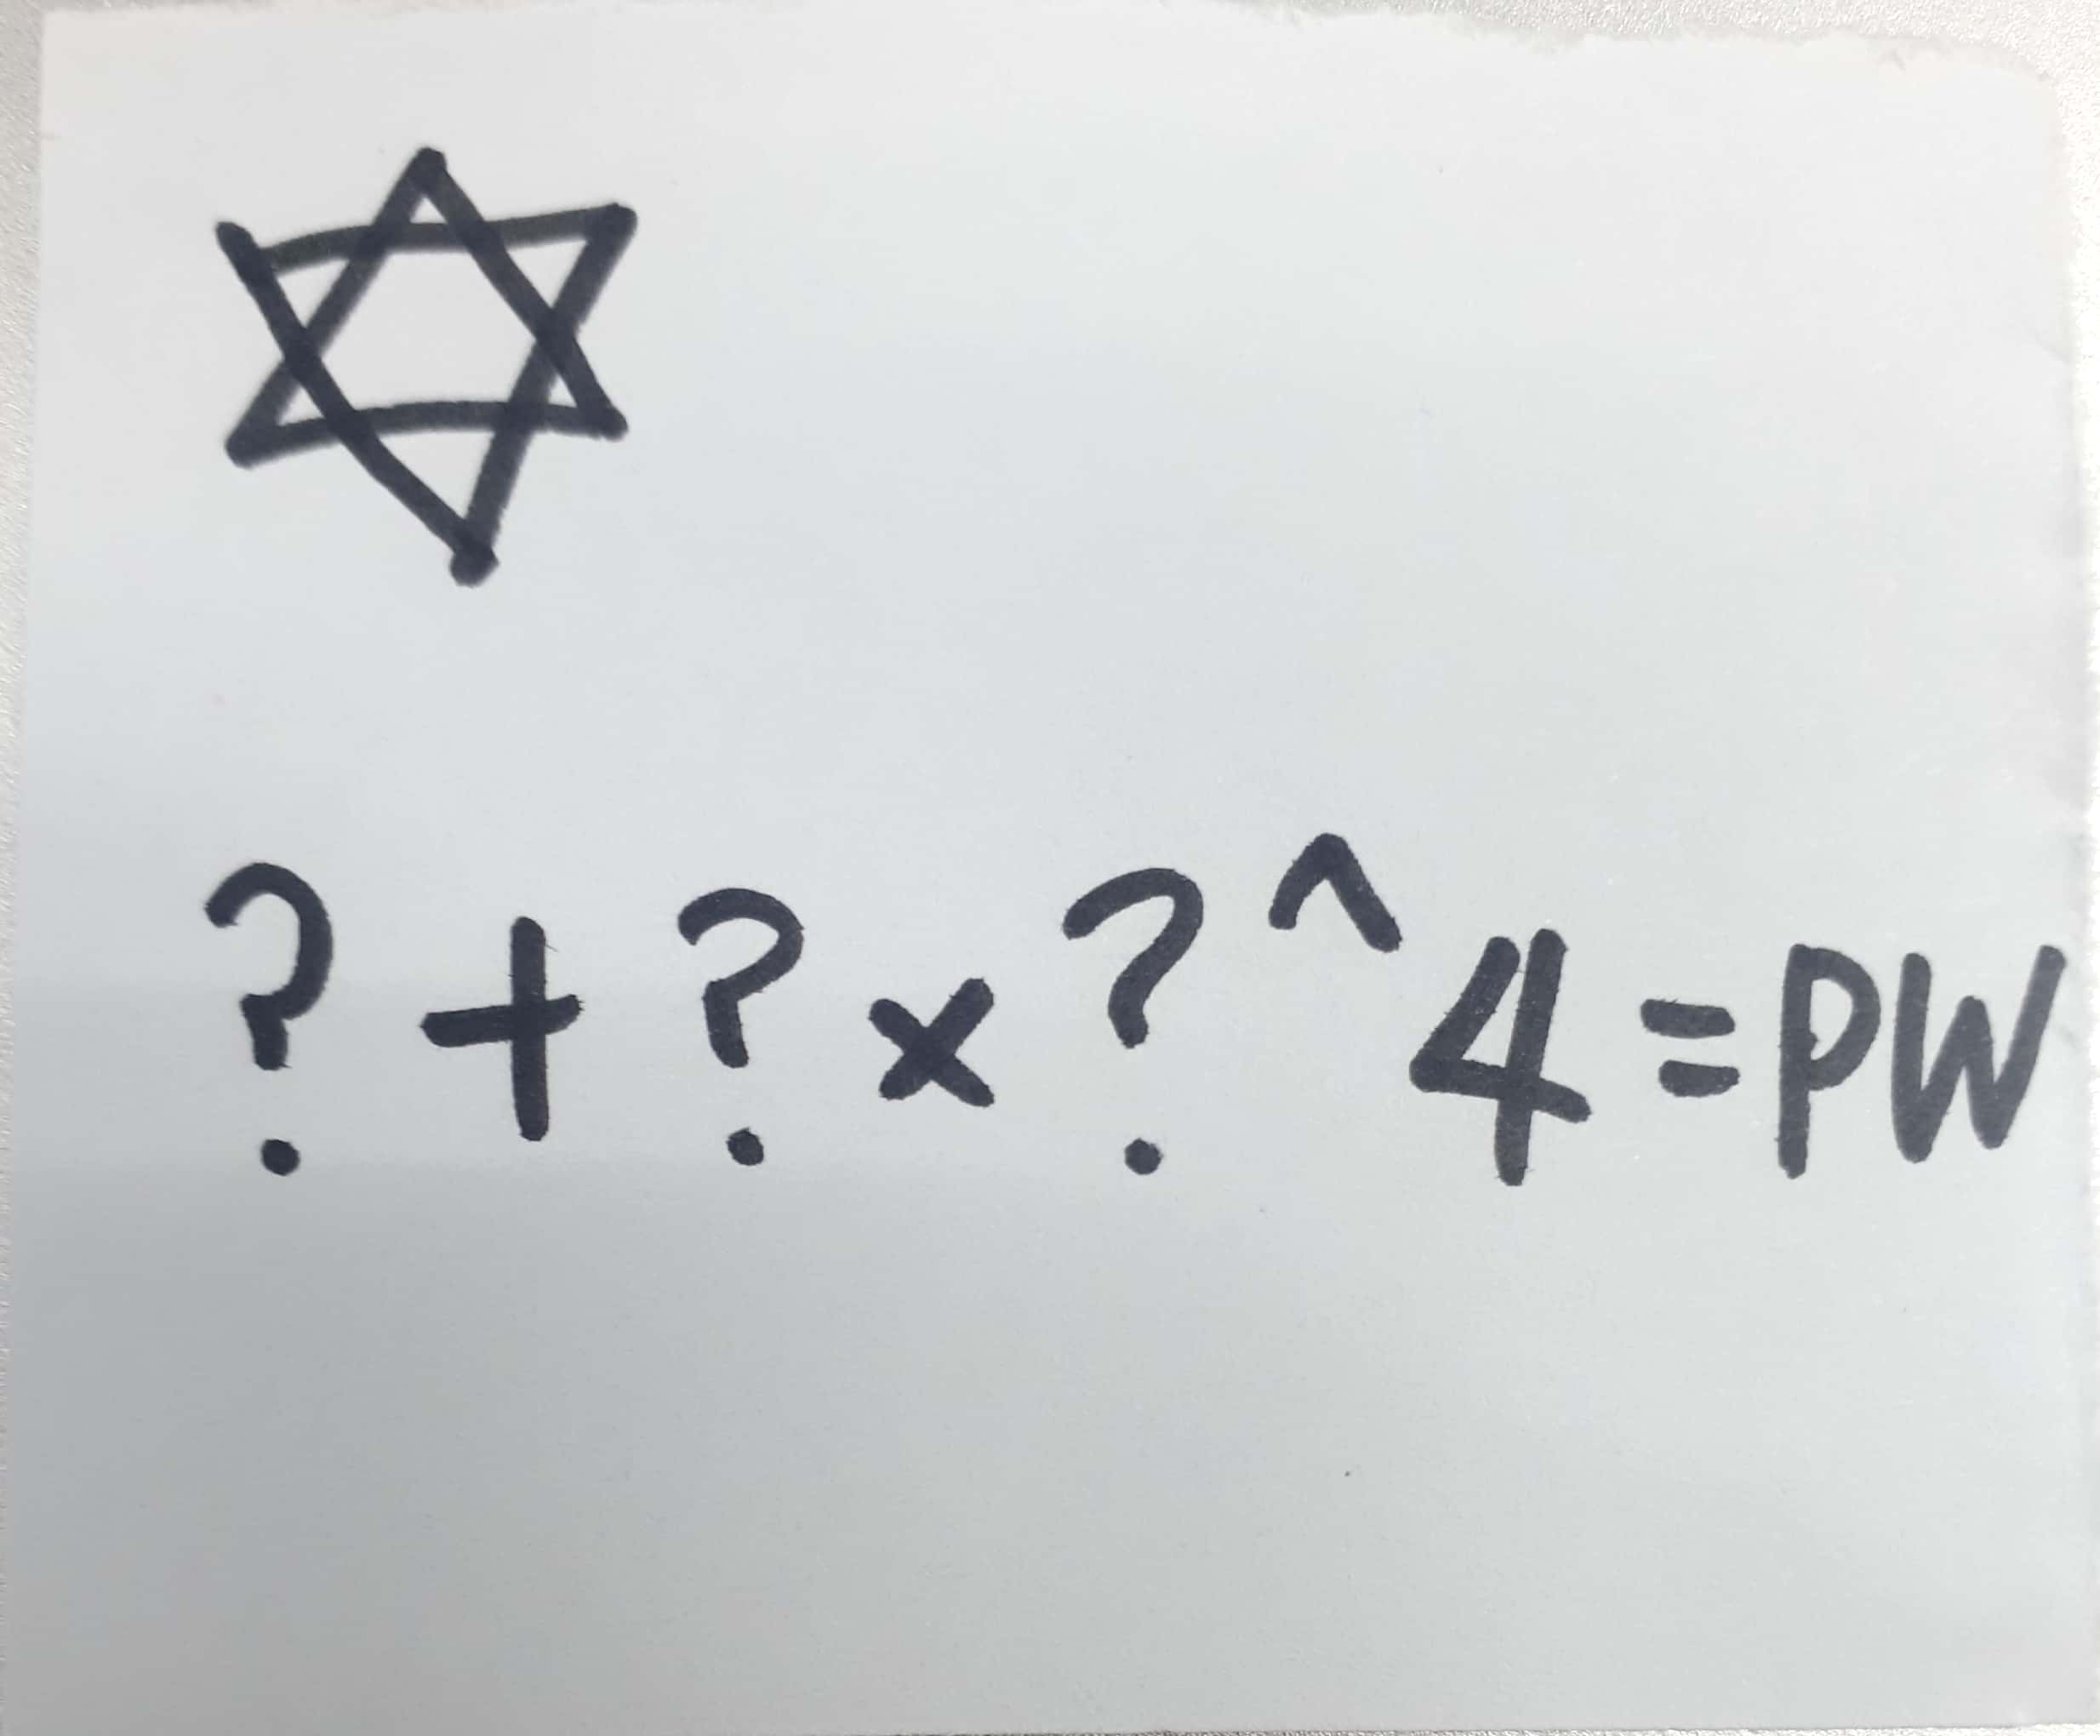 ? + ? × ? ^ 4 = PW